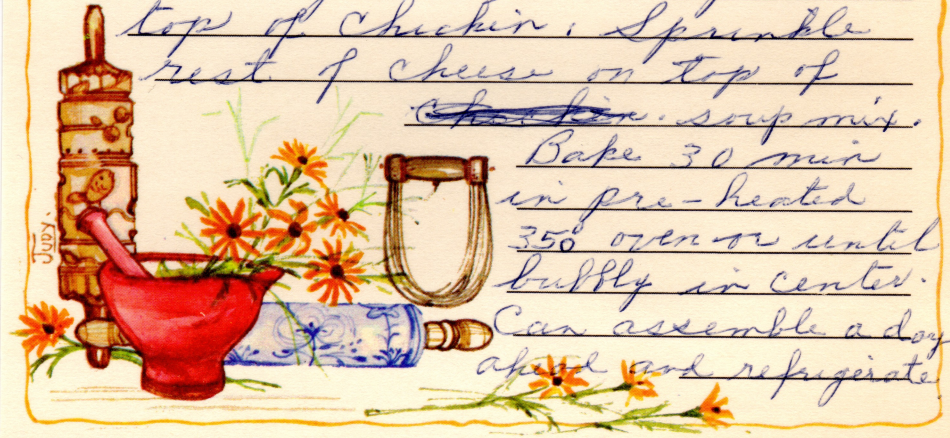 top of Chickin. Sprinkle
rest of cheese on top of
soup mix.
Bake 30 min
in pre-heated
350 oven or until
bubbly in center.
Can assemble a day
ahead and refrigerate
Judy.